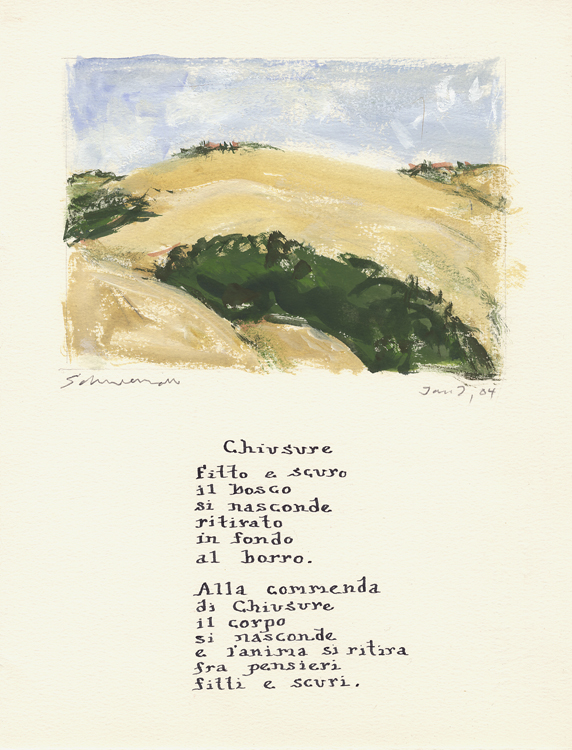 Schwendau Jan 7, 04
Chiusure
Fitto e scuro
il bosco
si nasconde
ritirato
in fondo
al borro.
Alla commenda
di Chiusure
il corpo
si nasconde
e l'anima si ritira
fra pensieri
fitti e scuri.